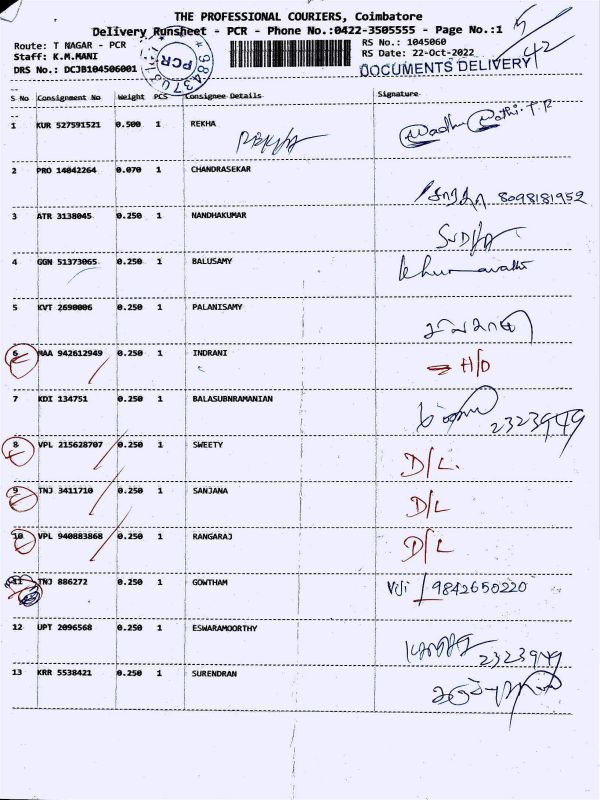 THE PROFESSIONAL COURIERS, Coimbatore
Delivery Runsheet - PCR - Phone No.:0422-3505555 - Page No.:1
Route: T NAGAR - PCR
RS No.: 1045060
Staff: K.M.MANI
RS Date: 22-Oct-2022
DRS No.: DCJB104506001
PCR
DOCUMENTS DELIVERY
42
S No Consignment No Weight PCS Consignee Details Signature
1 KUR 527591521 0.500 1 REKHA
2 PRO 14042264 0.070 1 CHANDRASEKAR
8098181952
3 ATR 3138045 0.250 1 NANDHAKUMAR
SUDHA
4 GGN 51373065 0.250 1 BALUSAMY
5 KVT 2690006 0.250 1 PALANISAMY
6 MAA 942612949 0.250 1 INDRANI
H/O
7 KDI 134751 0.250 1 BALASUBNRAMANIAN
2323949
8 VPL 215628707 0.250 1 SWEETY D/L.
9 TNJ 3411710 0.250 1 SANJANA D/L
10 VPL 940883868 0.250 1 RANGARAJ D/L
11 TNJ 886272 0.250 1 GOWTHAM Viji / 9842650220
12 UPT 2096568 0.250 1 ESWARAMOORTHY
2323949
13 KRR 5538421 0.250 1 SURENDRAN